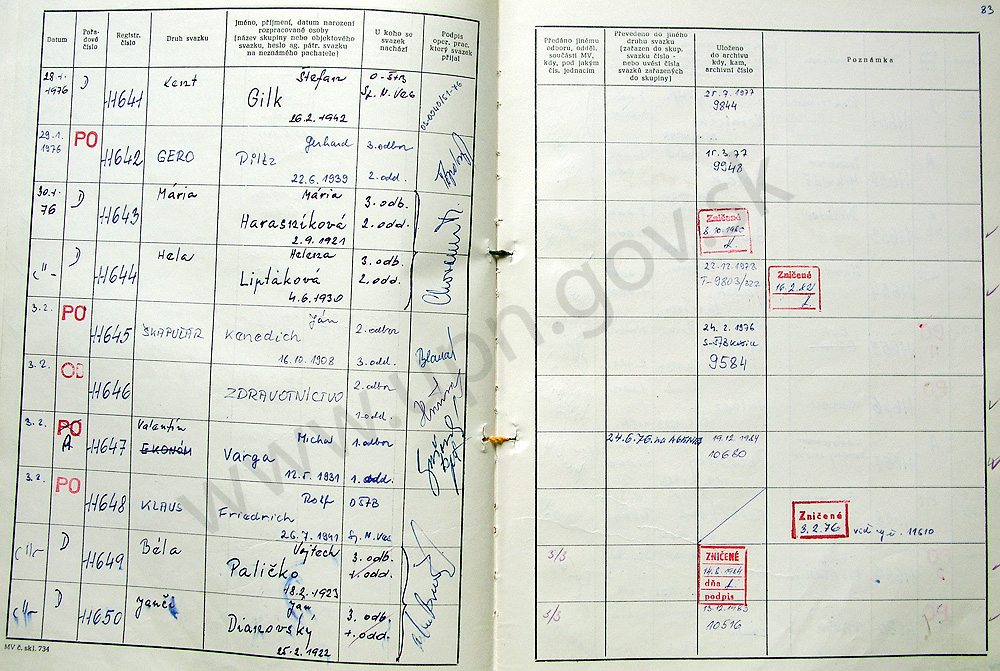 83
Datum
Pořadové číslo
Registr. číslo
Druh svazku
Jméno, příjmení, datum narození
rozpracované osoby
(název skupiny nebo objektového
svazku, heslo ag. pátr. svazku
na neznámého pachatele)
U koho se
svazek
nachází
Podpis
oper. prac.
který svazek
přijal
Předáno jinému
odboru, odděl.
součásti MV,
kdy, pod jakým
čís. jednacím
Převedeno do jiného
druhu svazku
(zařazen do skup.
svazku číslo -
nebo uvést čísla
svazků zařazených
do skupiny)
Uloženo
do archivu
kdy, kam,
archivní číslo
Poznámka
1976 D 11641 Kent Stefan
Gilk
26.2.1942
9844
29.1.
1976 PO 11642 GERO Gerhard 3. odbor
Piltz
22.6.1939 2. odd.
15.3.77
9948
76 D 11643 Mária Mária 3. odb.
Harasníková 2. odd.
2.9.1921
Zničené
8.10.1980
D 11644 Hela Helena 3. odb.
Liptáková 2. odd.
4.6.1930
22.12.1978
T-9803/322
Zničené
16.2.82
3.2. PO 11645 ŠKAPULÁR Ján 2. odbor
Kenedich
16.10.1908 3. odd.
24.2.1976
9584
3.2. OB 11646 ZDRAVOTNÍCTVO 2. odbor
1. odd.
3.2. PO A 11647 Valentín Michal 1. odbor
EKONÓM Varga
12.5.1931 1. odd.
24.6.76 na
19.12.1984
10680
3.2. PO 11648 KLAUS Rolf OŠTB
Friedrich
26.7.1941
Zničené
3.2.76
11610
D 11649 Béla Vojtech 3. odb.
Paličko 1. odd.
18.2.1923
5/5
ZNIČENÉ
14.8.1984
dňa
podpis
D 11650 Janči Ján 3. odb.
Dianovský 1. odd.
25.2.1922
5/5
13.12.1983
10516
MV č. skl. 734
www.upn.gov.sk